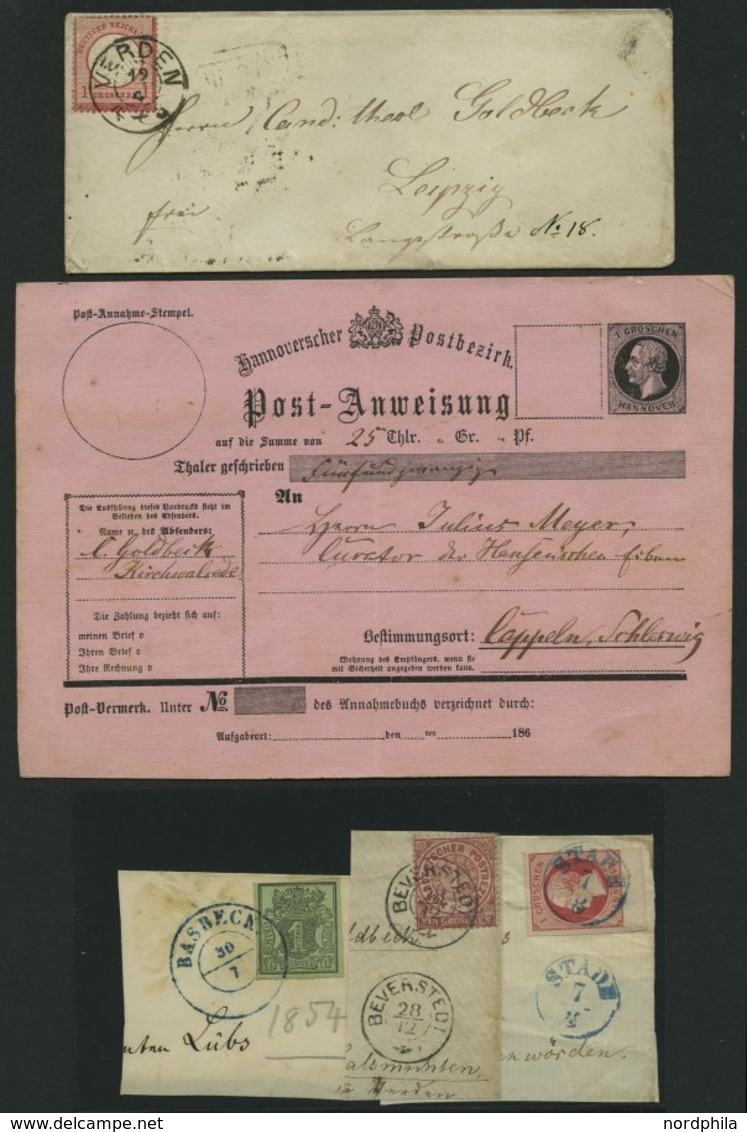 DEUTSCHE REICHS
1 GROSCHEN
VERDEN
19
4
Herrn Cand: theol Goldbeck
Leipzig
frei
Langestraße No 18.
Post-Annahme-Stempel.
Hannoverscher Postbezirk.
1 GROSCHEN
HANNOVER
Post-Anweisung
auf die Summe von 25 Thlr. „ Gr. „ Pf.
Thaler geschrieben Fünfundzwanzig
An
Die Ausfüllung dieses Vordrucks steht im
Belieben des Absenders.
Name ꝛc. des Absenders:
C. Goldbeck
Kirchwalsede
Die Zahlung bezieht sich auf:
meinen Brief v
Ihren Brief v
Ihre Rechnung v
Herrn Julius Meyer,
Curator der Hansenschen
Bestimmungsort: Cappeln, Schleswig
Wohnung des Empfängers, wenn sie
mit Sicherheit angegeben werden kann.
Post-Vermerk. Unter No des Annahmebuchs verzeichnet durch:
Aufgabeort: den ten 186
BASBECK
30
7
1
1854
Lübs
BEVERSTEDT
BEVERSTEDT
28
12
Verden
1 GROSCHEN
STADE
7
STADE
7
wörden.
nordphila